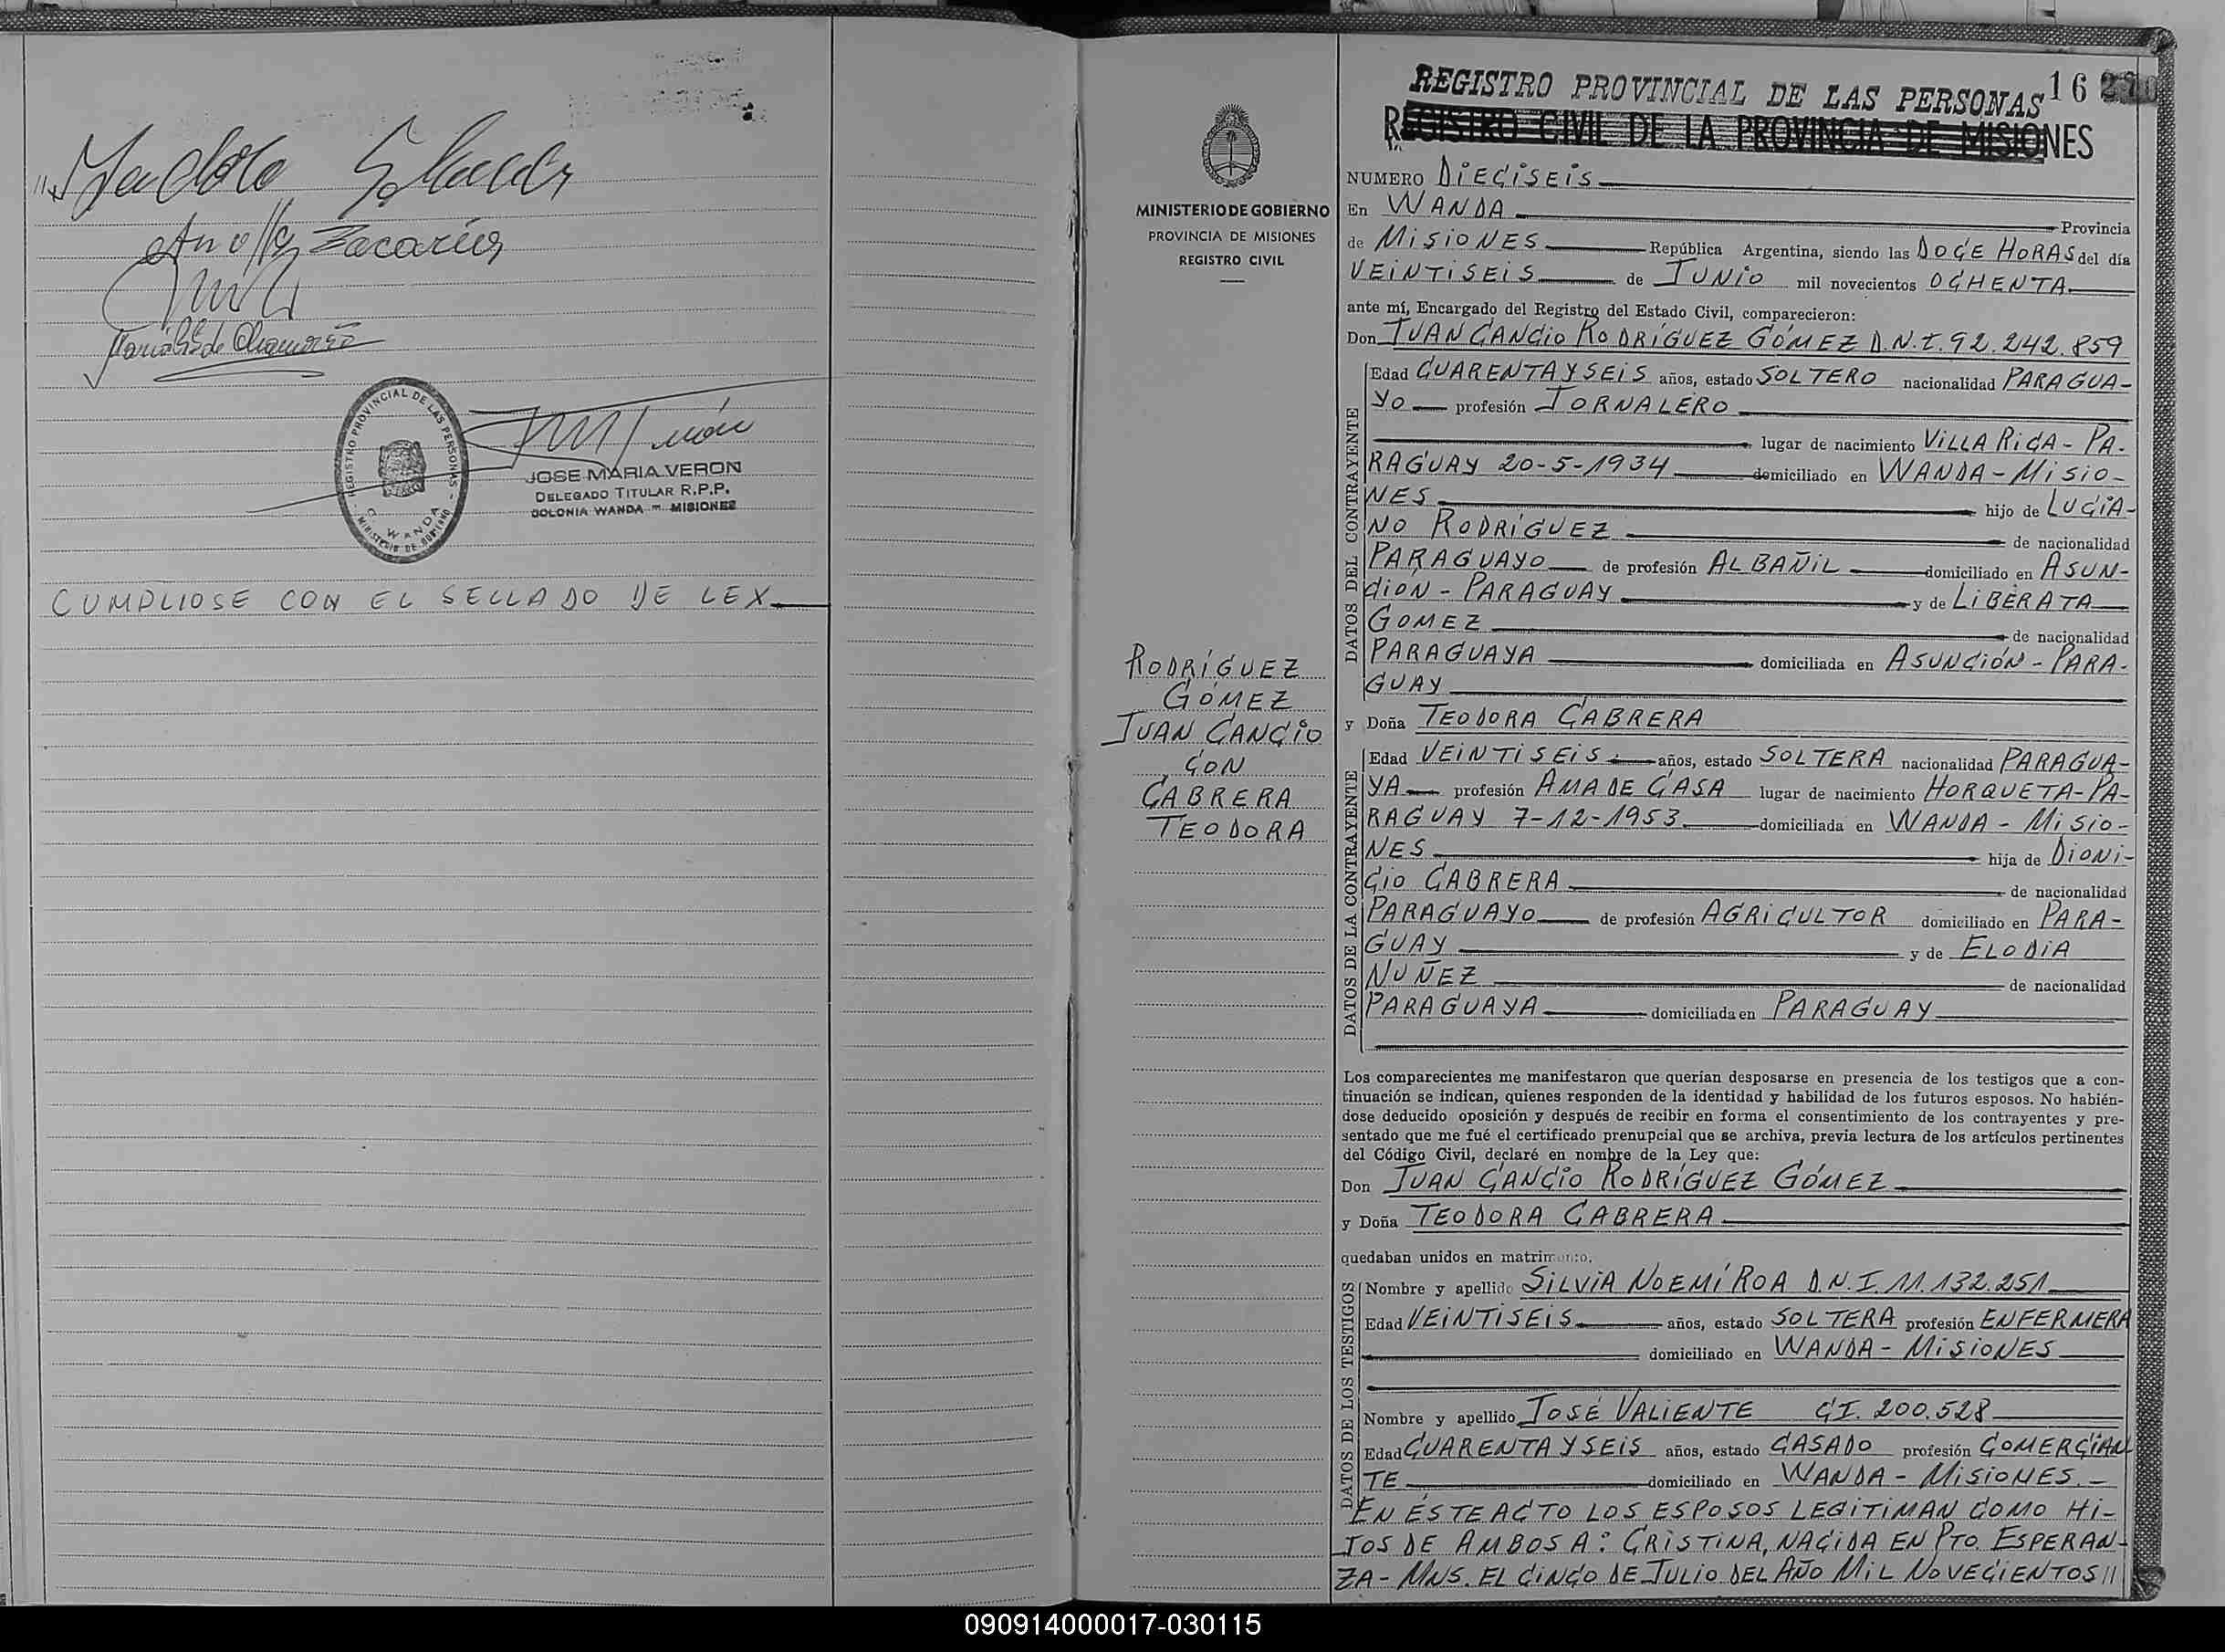 Zacarías
JOSE MARIA VERON
DELEGADO TITULAR R.P.P.
COLONIA WANDA - MISIONES
REGISTRO PROVINCIAL DE LAS PERSONAS
C. WANDA
MINISTERIO DE GOBIERNO
CUMPLIOSE CON EL SELLADO DE LEX
MINISTERIO DE GOBIERNO
PROVINCIA DE MISIONES
REGISTRO CIVIL
RODRÍGUEZ
GÓMEZ
JUAN CANCIO
CON
CABRERA
TEODORA
REGISTRO PROVINCIAL DE LAS PERSONAS 16
REGISTRO CIVIL DE LA PROVINCIA DE MISIONES
NUMERO DIECISEIS
En WANDA Provincia
de MISIONES República Argentina, siendo las DOCE HORAS del día
VEINTISEIS de JUNIO mil novecientos OCHENTA
ante mí, Encargado del Registro del Estado Civil, comparecieron:
Don JUAN CANCIO RODRÍGUEZ GÓMEZ D.N.I. 92.242.859
DATOS DEL CONTRAYENTE
Edad CUARENTA Y SEIS años, estado SOLTERO nacionalidad PARAGUA-
YO profesión JORNALERO
lugar de nacimiento VILLA RICA - PA-
RAGUAY 20-5-1934 domiciliado en WANDA - MISIO-
NES hijo de LUCIA-
NO RODRÍGUEZ de nacionalidad
PARAGUAYO de profesión ALBAÑIL domiciliado en ASUN-
CIÓN - PARAGUAY y de LIBERATA
GOMEZ de nacionalidad
PARAGUAYA domiciliada en ASUNCIÓN - PARA-
GUAY
y Doña TEODORA CABRERA
DATOS DE LA CONTRAYENTE
Edad VEINTISEIS años, estado SOLTERA nacionalidad PARAGUA-
YA profesión AMA DE CASA lugar de nacimiento HORQUETA - PA-
RAGUAY 7-12-1953 domiciliada en WANDA - MISIO-
NES hija de DIONI-
CIO CABRERA de nacionalidad
PARAGUAYO de profesión AGRICULTOR domiciliado en PARA-
GUAY y de ELODIA
NUÑEZ de nacionalidad
PARAGUAYA domiciliada en PARAGUAY
Los comparecientes me manifestaron que querían desposarse en presencia de los testigos que a con-
tinuación se indican, quienes responden de la identidad y habilidad de los futuros esposos. No habién-
dose deducido oposición y después de recibir en forma el consentimiento de los contrayentes y pre-
sentado que me fué el certificado prenupcial que se archiva, previa lectura de los artículos pertinentes
del Código Civil, declaré en nombre de la Ley que:
Don JUAN CANCIO RODRÍGUEZ GÓMEZ
y Doña TEODORA CABRERA
quedaban unidos en matrimonio.
DATOS DE LOS TESTIGOS
Nombre y apellido SILVIA NOEMÍ ROA D.N.I. 11.132.251
Edad VEINTISEIS años, estado SOLTERA profesión ENFERMERA
domiciliado en WANDA - MISIONES
Nombre y apellido JOSÉ VALIENTE CI. 200.528
Edad CUARENTA Y SEIS años, estado CASADO profesión COMERCIAN
TE domiciliado en WANDA - MISIONES.-
EN ÉSTE ACTO LOS ESPOSOS LEGITIMAN COMO HI-
JOS DE AMBOS A: CRISTINA, NACIDA EN PTO. ESPERAN-
ZA - MNS. EL CINCO DE JULIO DEL AÑO MIL NOVECIENTOS //
090914000017-030115